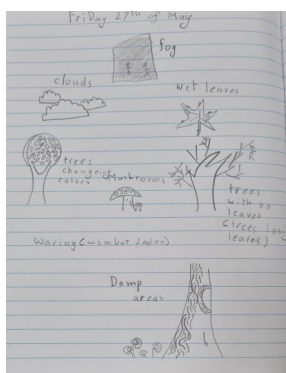 Friday 27th of May
fog
clouds
wet leaves
trees
change
Mushrooms
trees
with no
leaves
(trees
leaves)
Waring (wombat
Damp
areas